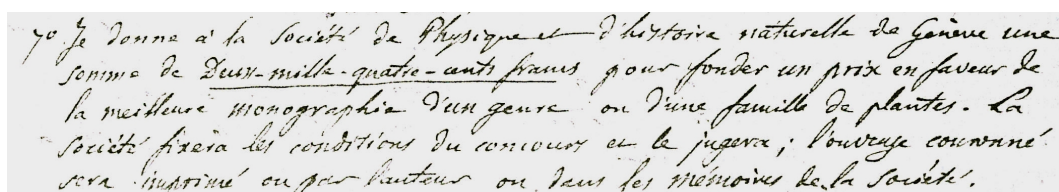 7º Je donne à la Société de Physique et d'histoire naturelle de Genève une
somme de Deux-mille-quatre-cents francs pour fonder un prix en faveur de
la meilleure monographie d'un genre ou d'une famille de plantes. La
Société fixera les conditions du concours et le jugera; l'ouvrage couronné
sera imprimé ou par l'auteur ou dans les mémoires de la Société.